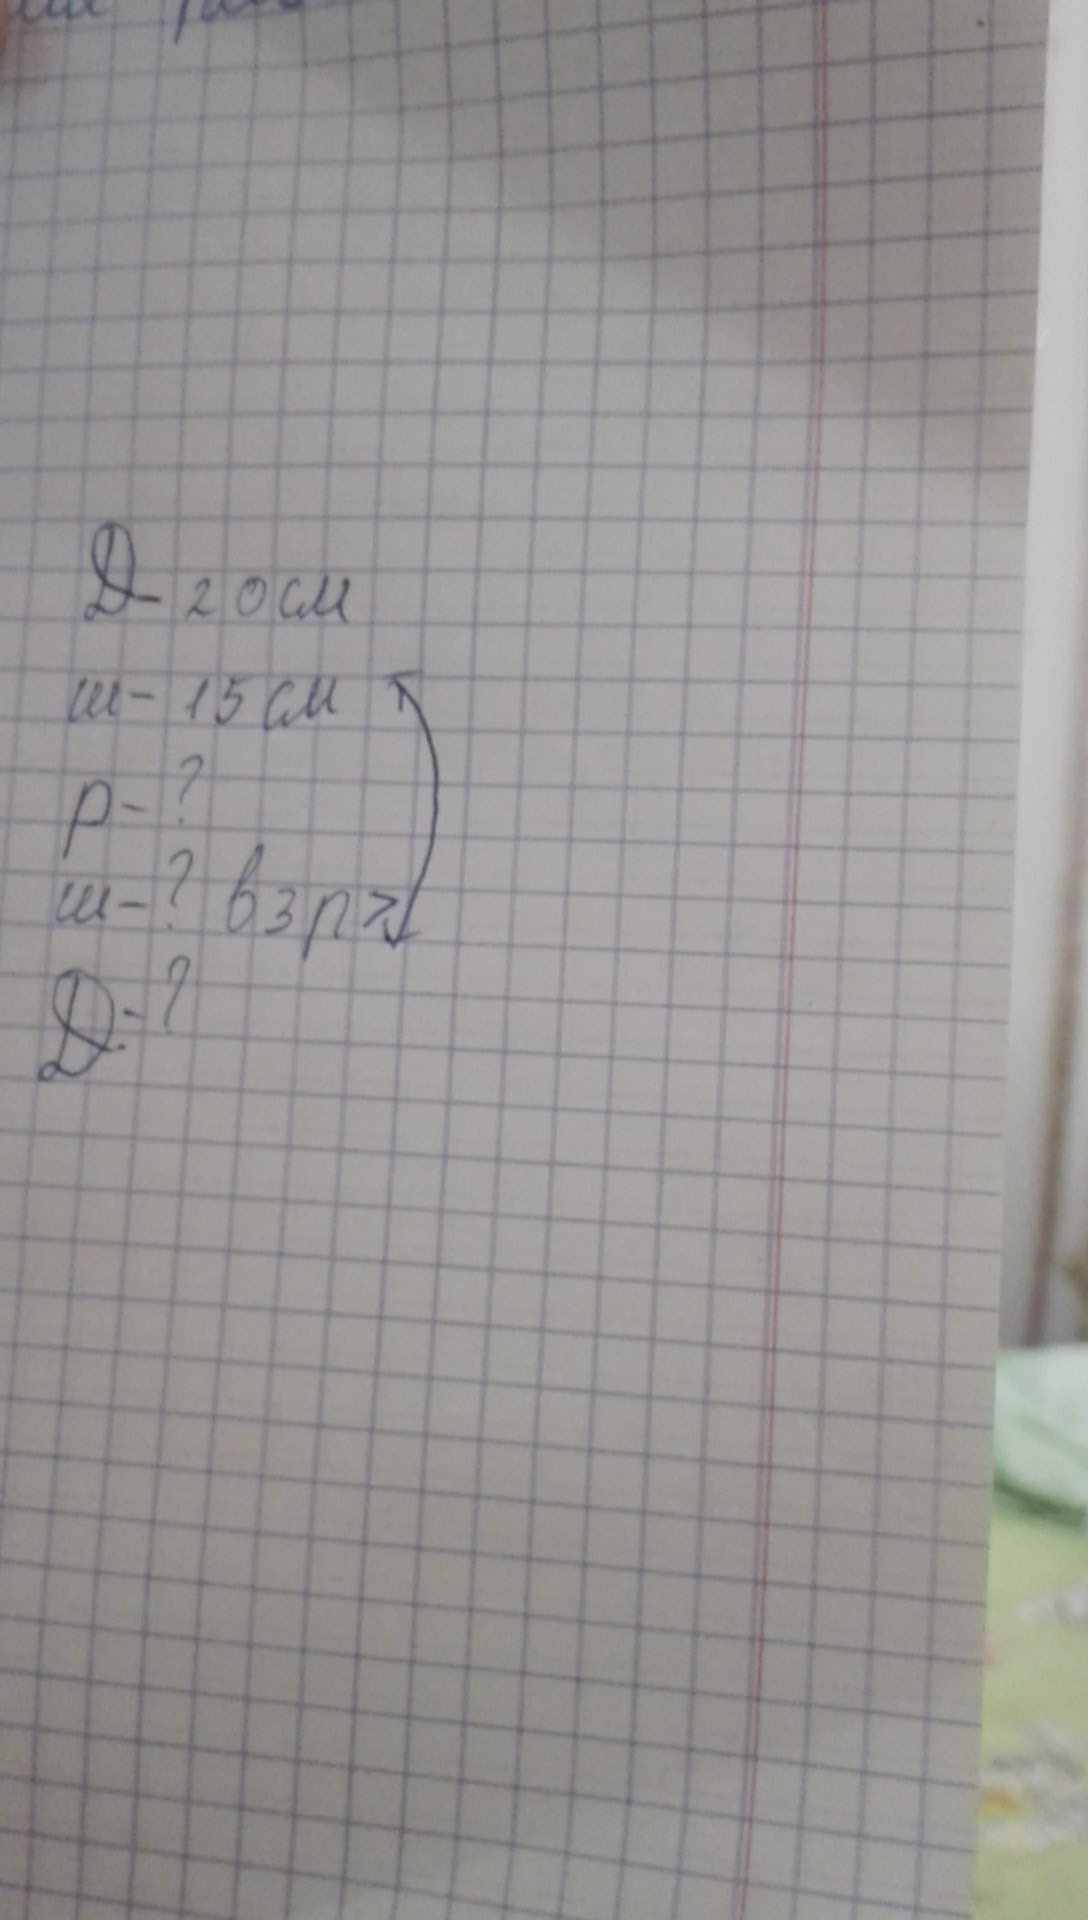 Д- 20 см
ш- 15 см
р- ?
ш- ? в 3 р >
Д- ?